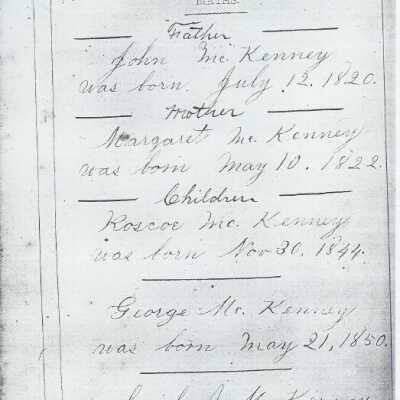 BIRTHS.
Father
John Mc Kenney
was born July 12. 1820.
Mother
Margaret Mc. Kenney
was born May 10. 1822.
Children
Roscoe Mc. Kenney
was born Nov 30. 1844.
George Mc. Kenney
was born May 21, 1850.
Mc Kenney